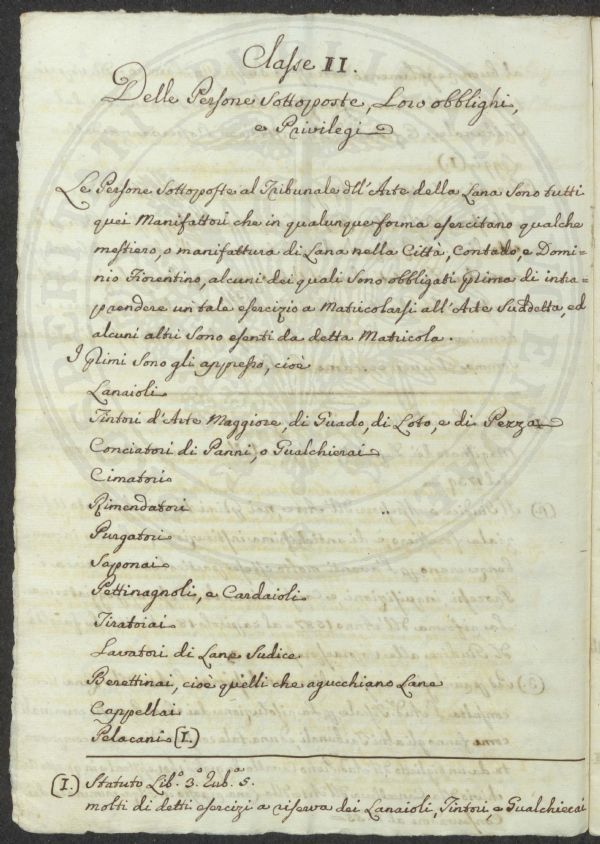 Classe II.
Delle Persone Sottoposte, Loro obblighi,
e Privilegi
Le Persone Sottoposte al Tribunale dell'Arte della Lana sono tutti
quei Manifattori che in qualunque forma esercitano qualche
mestiero, o manifattura di Lana nella Città, Contado, e Domi=
nio Fiorentino, alcuni dei quali sono obbligati prima di intra=
prendere un tale esercizio a Matricolarsi all'Arte Suddetta, ed
alcuni altri sono esenti da detta Matricola.
I primi sono gli appresso, cioè
Lanaioli
Tintori d'Arte Maggiore, di Guado, di Loto, e di Pezza
Conciatori di Panni, o Gualchierai
Cimatori
Rimendatori
Purgatori
Saponai
Pettinagnoli, e Cardaioli
Tiratoiai
Lavatori di Lane Sudice
Berettinai, cioè quelli che agucchiano Lane
Cappellai
Pelacani (I.)
(I.) Statuto Lib.o 3.o Rub.a 5.
molti di detti esercizi a riserva dei Lanaioli, Tintori, e Gualchierai